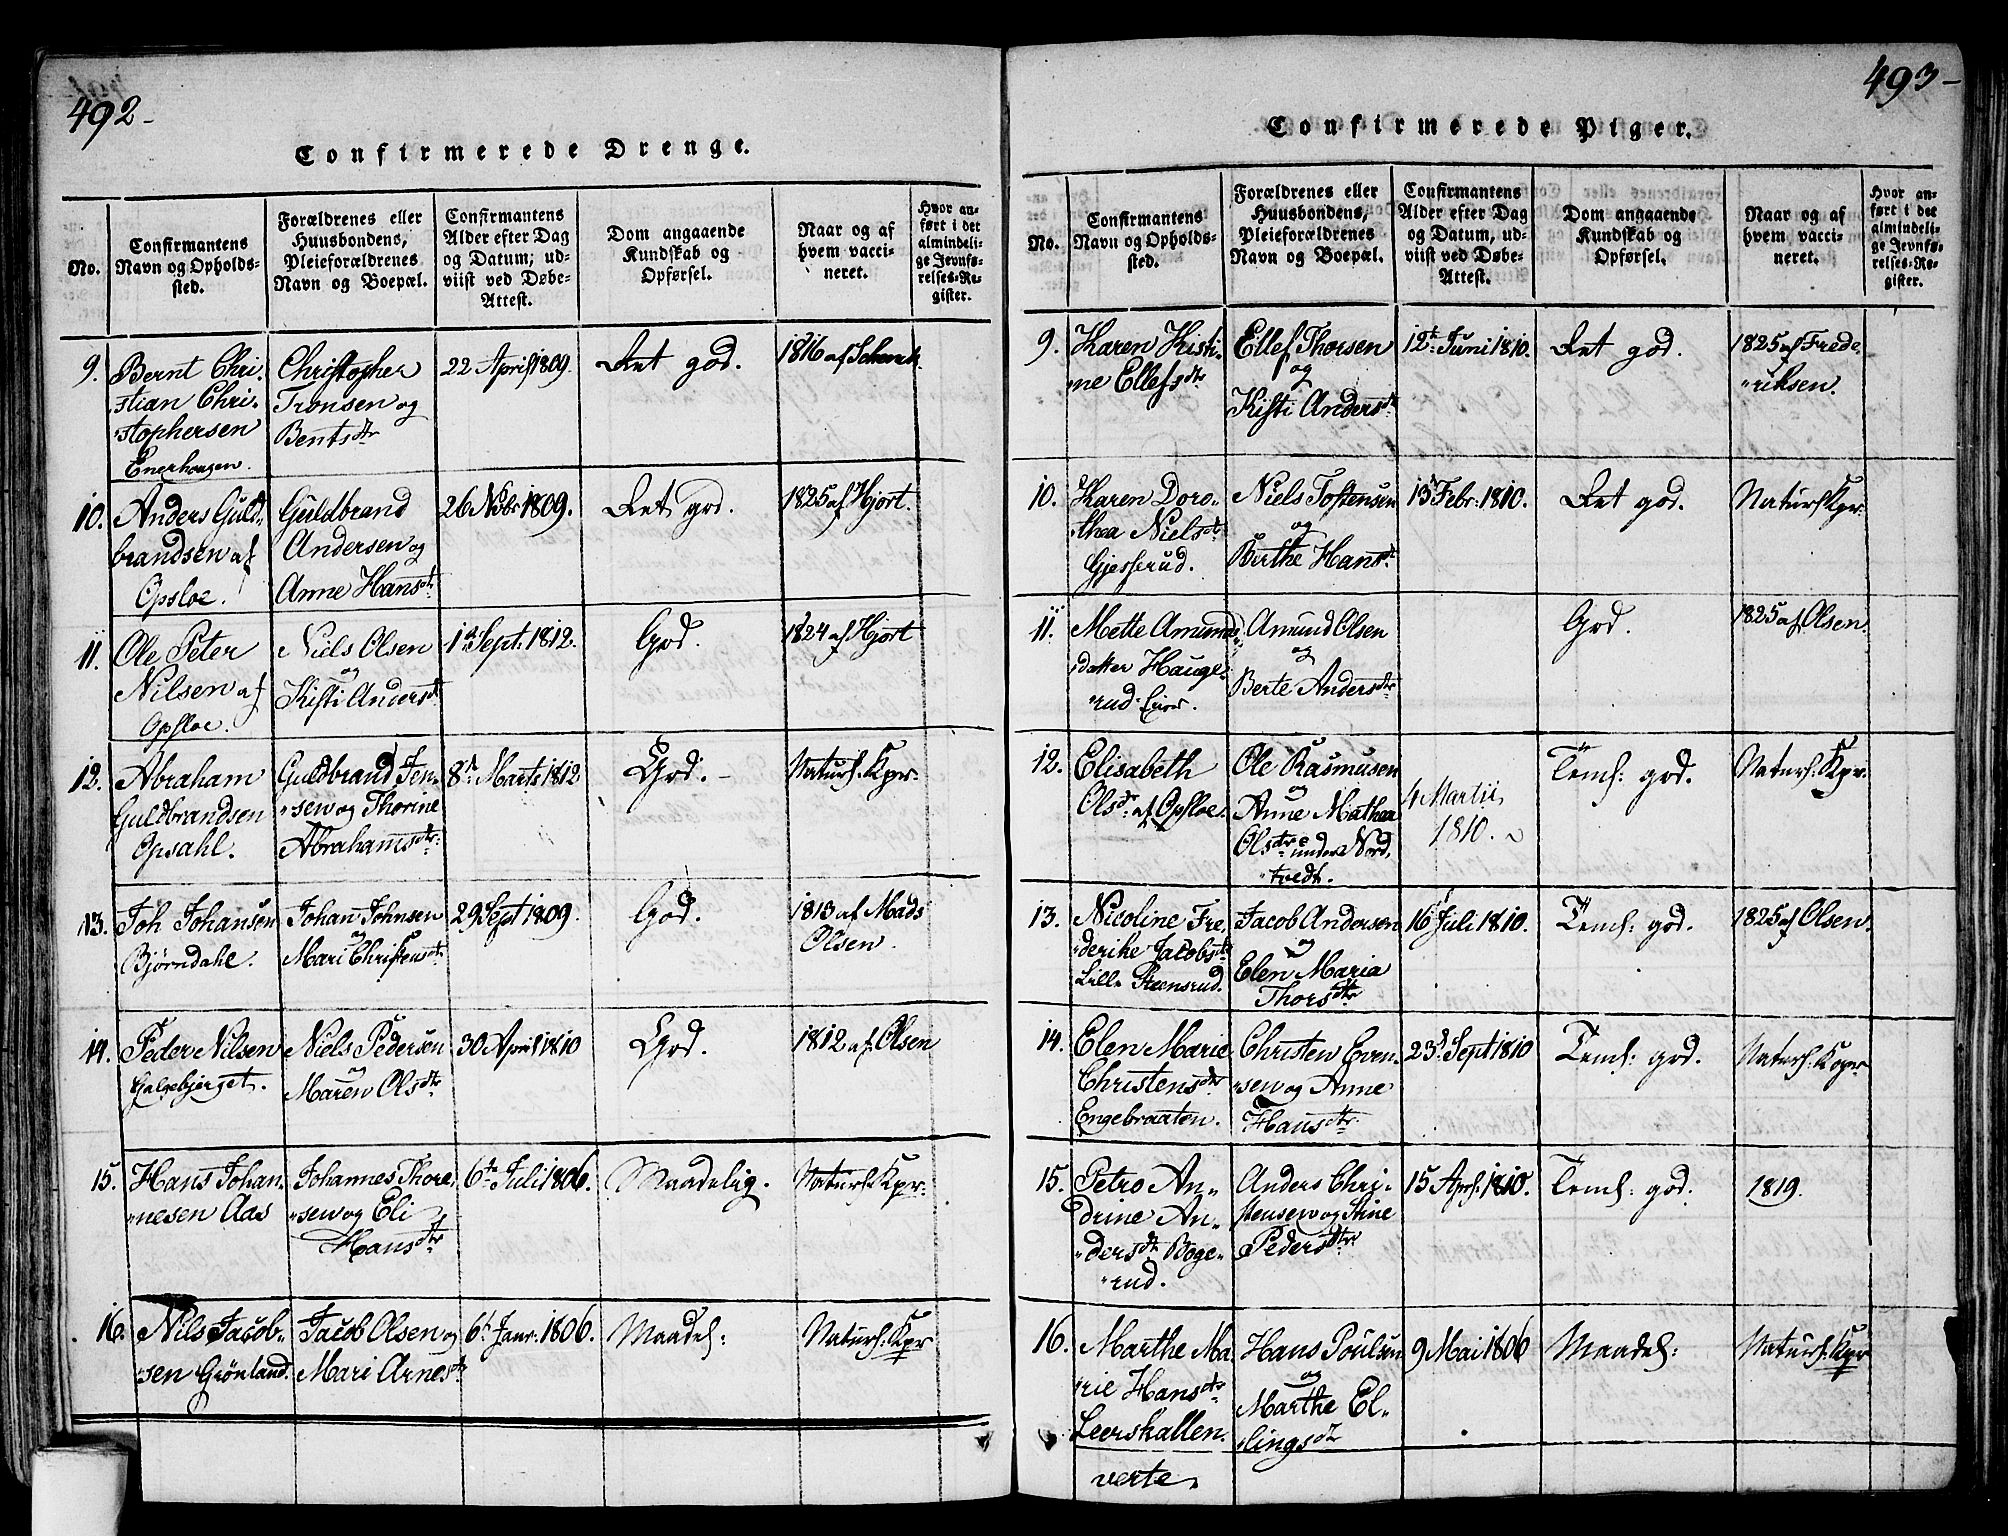 492-
Confirmerede Drenge.
No.
Confirmantens
Navn og Opholds-
sted.
Forældrenes eller
Huusbondens,
Pleieforældrenes
Navn og Boepæl.
Confirmantens
Alder efter Dag
og Datum, ud-
viist ved Døbe-
Attest.
Dom angaaende
Kundskab og
Opførsel.
Naar og af
hvem vacci-
neret.
Hvor an-
ført i det
almindeli-
ge Jevnfø-
relses-Re-
gister.
9. Bernt Chri-
stian Chri-
stophersen
Enerhougen.
Christopher
Tronsen og
Bentsdtr
22 April 1809.
Ret god.
1816 af Schenk
10. Anders Guld-
brandsen af
Opsloe.
Guldbrand
Andersen og
Anne Hansdtr
26 Nobr 1809.
Ret god.
1825 af Hjort.
11. Ole Peter
Nilsen af
Opsloe.
Niels Olsen
og
Kisti Andersdtr
1te Sept. 1812.
God.
1824 af Hjort
12. Abraham
Guldbrandsen
Opsahl.
Guldbrand Jen-
sen og Thorine
Abrahamsdtr:
8de Marts 1812
God. -
Naturl. Kpr:
13. Joh Johansen
Bjørndahl.
Johan Johnsen
og
Mari Christensdtr
29 Sept 1809.
God.
1813 af Mads
Olsen.
14. Peder Nilsen
Galgebjerget.
Niels Pedersen
og
Maren Olsdtr
30 April 1810
God.
1812 af Olsen
15. Hans Johan-
nesen Aas
Johannes Thore-
sen og Eli
Hansdtr
6te Juli 1806.
Maadelig.
Naturl: Kpr:
16. Nils Jacob-
sen Grønland.
Jacob Olsen og
Mari Arnesdtr
6t Janr: 1806.
Maadel:
Naturl: Kpr
493-
Confirmerede Piger.
No.
Confirmantens
Navn og Opholds-
sted.
Forældrenes eller
Huusbondens,
Pleieforældrenes
Navn og Boepæl.
Confirmantens
Alder efter Dag
og Datum, ud-
viist ved Døbe-
Attest.
Dom angaaende
Kundskab og
Opførsel.
Naar og af
hvem vacci-
neret.
Hvor an-
ført i det
almindeli-
ge Jevnfø-
relses-Re-
gister.
9. Karen Kisti-
ne Ellefsdtr
Ellef Thorsen
og
Kisti Andersdtr
12t Juni 1810.
Ret god.
1825 af Frede-
riksen.
10. Karen Doro-
thea Nielsdtr
Gjesserud.
Niels Tostensen
og
Berthe Hansdtr
13 Febr: 1810.
Ret god.
Naturl. Kpr:
11. Mette Amunds-
datter Hauge-
rud
Amund Olsen
og
Berte Andersdtr
God.
1825 af Olsen.
12. Elisabeth
Olsdtr af Opsloe.
Ole Rasmusen
og
Anne Mathea
Olsdtr under Nord-
tvedt.
4 Martii
1810.
Teml: god.
Naturl: Kpr.
13. Nicoline Fre-
derike Jacobsdtr
Lille Steensrud.
Jacob Andersen
og
Elen Maria
Thorsdtr
16 Juli 1810.
Teml: god.
1825 af Olsen.
14. Elen Marie
Christensdtr
Engebraaten.
Christen Even-
sen og Anne
Hansdtr.
23d Sept 1810
Teml: god.
Naturl: Kopr
15. Petro An-
drine An-
dersdtr Boge-
rud.
Anders Chri-
stensen og Stine
Pedersdtr
15 Apr. 1810.
Teml: god.
1819.
16. Marthe Ma-
rie Hansdtr
Leerskallen.
Hans Poulsen
og
Marthe El-
lingsdtr
9 Mai 1806
Maadel:
Naturl: Kpr
verte